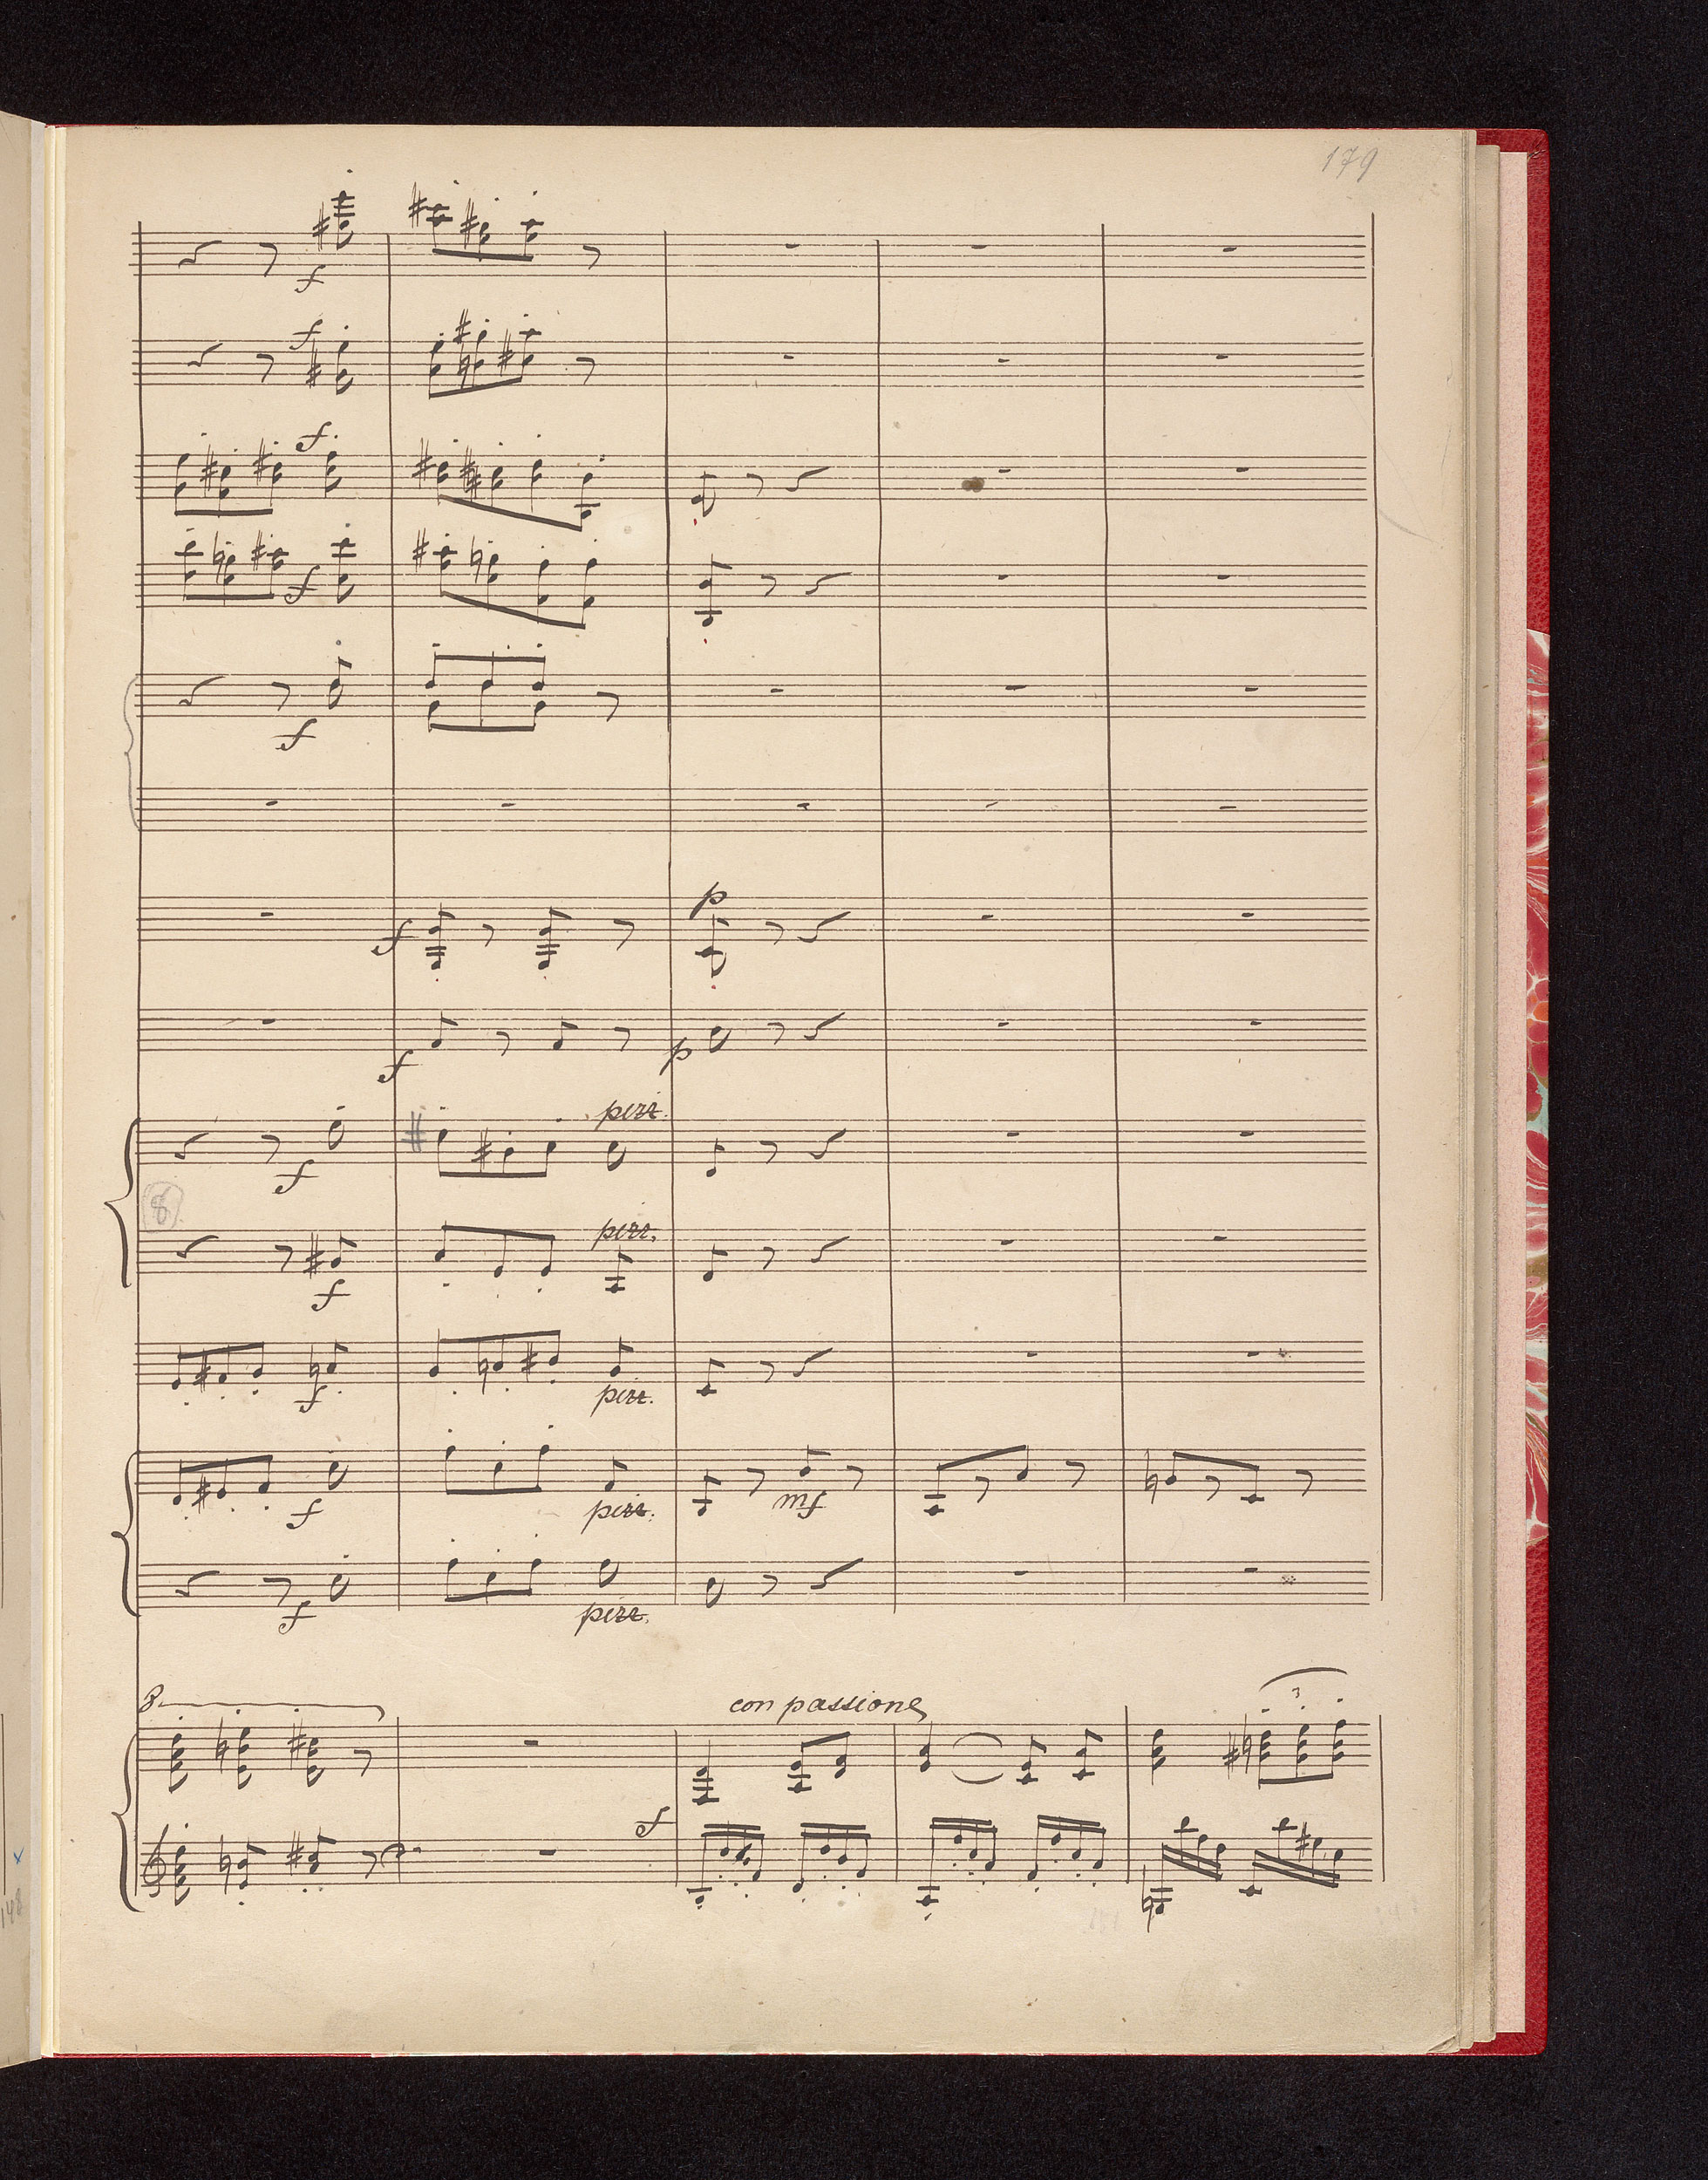 179
f
f
f
f
f
p
f
f
p
pizz.
f
8
pizz.
f
f
pizz.
f
pizz.
mf
f
pizz.
8
con passione
3
f
148